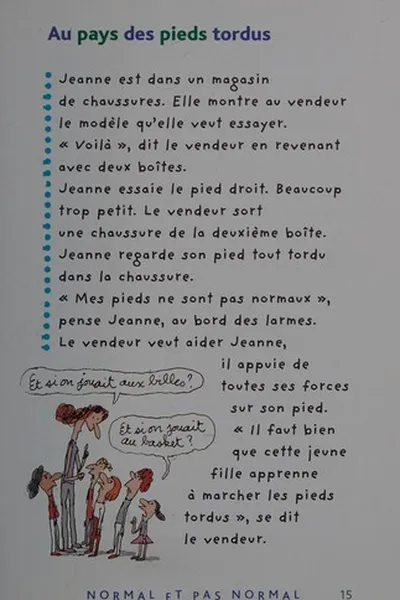 Au pays des pieds tordus
Jeanne est dans un magasin
de chaussures. Elle montre au vendeur
le modèle qu'elle veut essayer.
« Voilà », dit le vendeur en revenant
avec deux boîtes.
Jeanne essaie le pied droit. Beaucoup
trop petit. Le vendeur sort
une chaussure de la deuxième boîte.
Jeanne regarde son pied tout tordu
dans la chaussure.
« Mes pieds ne sont pas normaux »,
pense Jeanne, au bord des larmes.
Le vendeur veut aider Jeanne,
il appuie de
toutes ses forces
sur son pied.
« Il faut bien
que cette jeune
fille apprenne
à marcher les pieds
tordus », se dit
le vendeur.
Et si on jouait aux billes?
Et si on jouait
au basket?
NORMAL ET PAS NORMAL 15